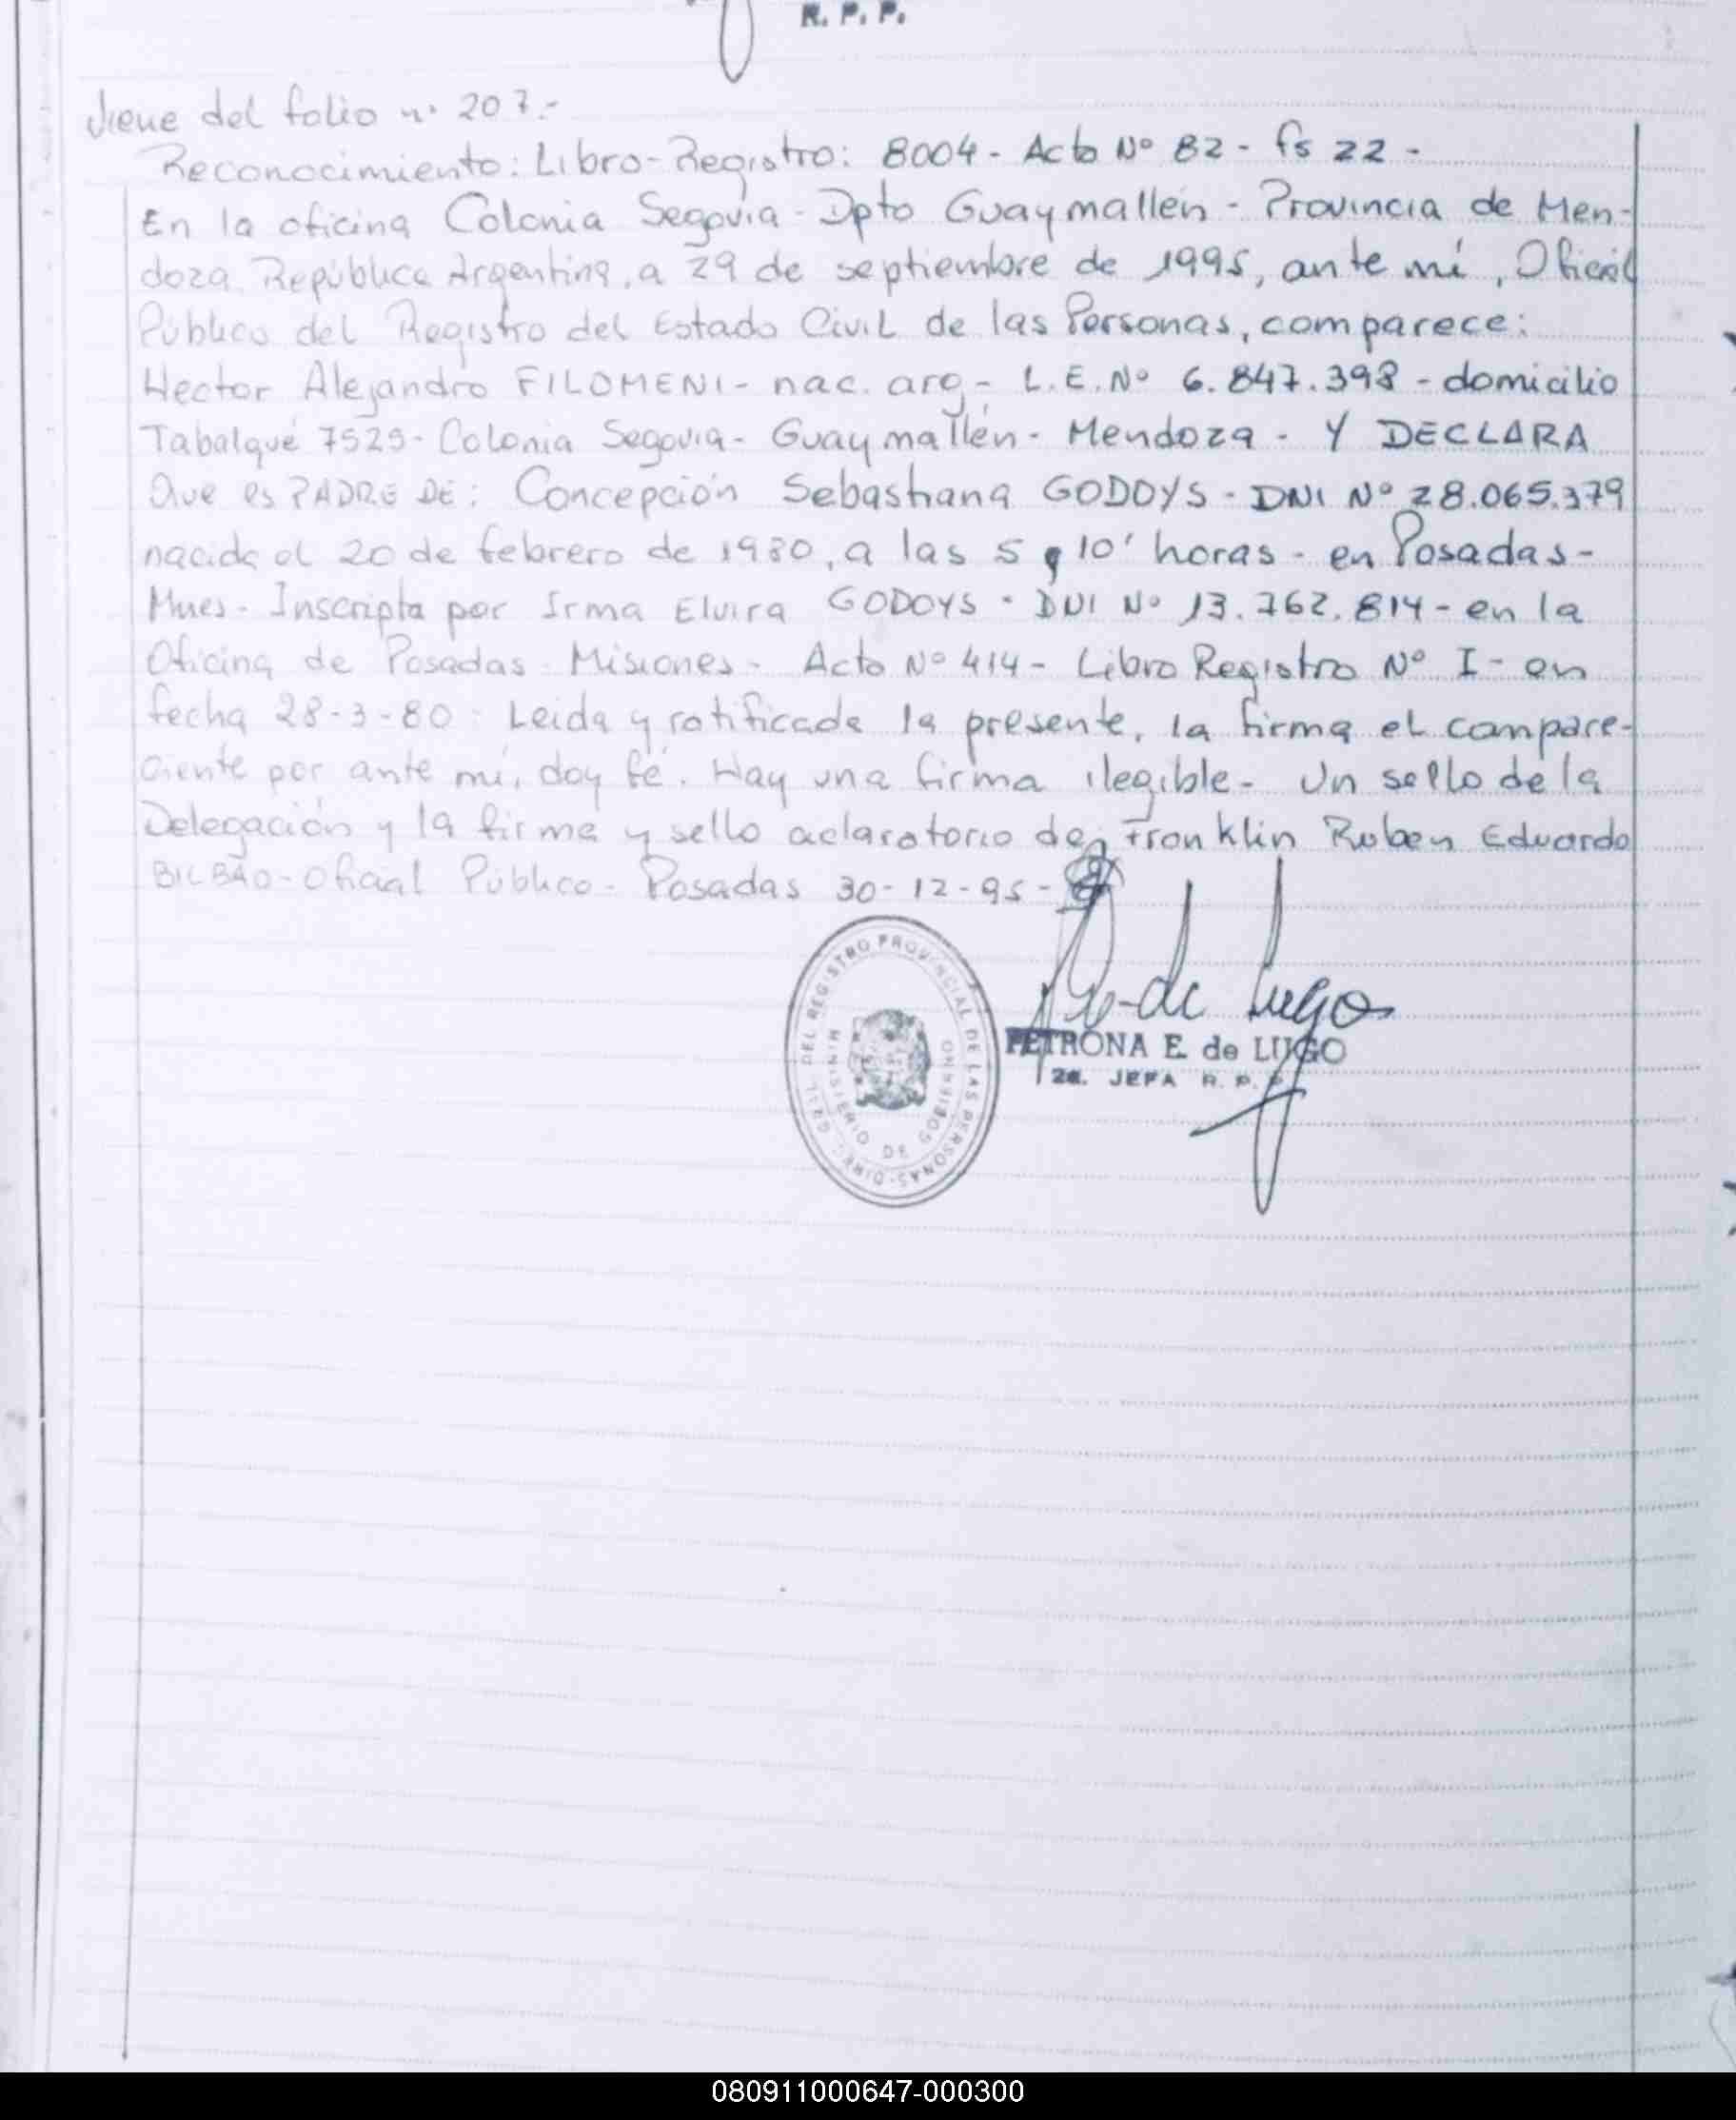 R. P. P.
Viene del folio nº 207.-
Reconocimiento: Libro-Registro: 8004 - Acta Nº 82 - fs 22 -
En la oficina Colonia Segovia - Dpto Guaymallén - Provincia de Men-
doza, República Argentina, a 29 de septiembre de 1995, ante mí, Oficial
Público del Registro del Estado Civil de las Personas, comparece:
Hector Alejandro FILOMENI - nac. arg. - L.E. Nº 6.847.398 - domicilio
Tabalqué 7525 - Colonia Segovia - Guaymallén - Mendoza - Y DECLARA
Que es PADRE DE: Concepción Sebastiana GODOYS - DNI Nº 28.065.379
nacida el 20 de febrero de 1980, a las 5 y 10' horas - en Posadas -
Mnes - Inscripta por Irma Elvira GODOYS - DNI Nº 13.762.814 - en la
Oficina de Posadas - Misiones - Acta Nº 414 - Libro Registro Nº I - en
fecha 28-3-80 - Leida y ratificada la presente, la firma el compare-
ciente por ante mí, doy fé. Hay una firma ilegible - Un sello de la
Delegación y la firma y sello aclaratorio de Franklin Ruben Eduardo
BILBÃO - Oficial Público - Posadas 30-12-95 -
DIREC. GRAL. DEL REGISTRO PROVINCIAL DE LAS PERSONAS
MINISTERIO DE GOBIERNO
de Lugo
PETRONA E. de LUGO
2a. JEFA R. P. P.
080911000647-000300